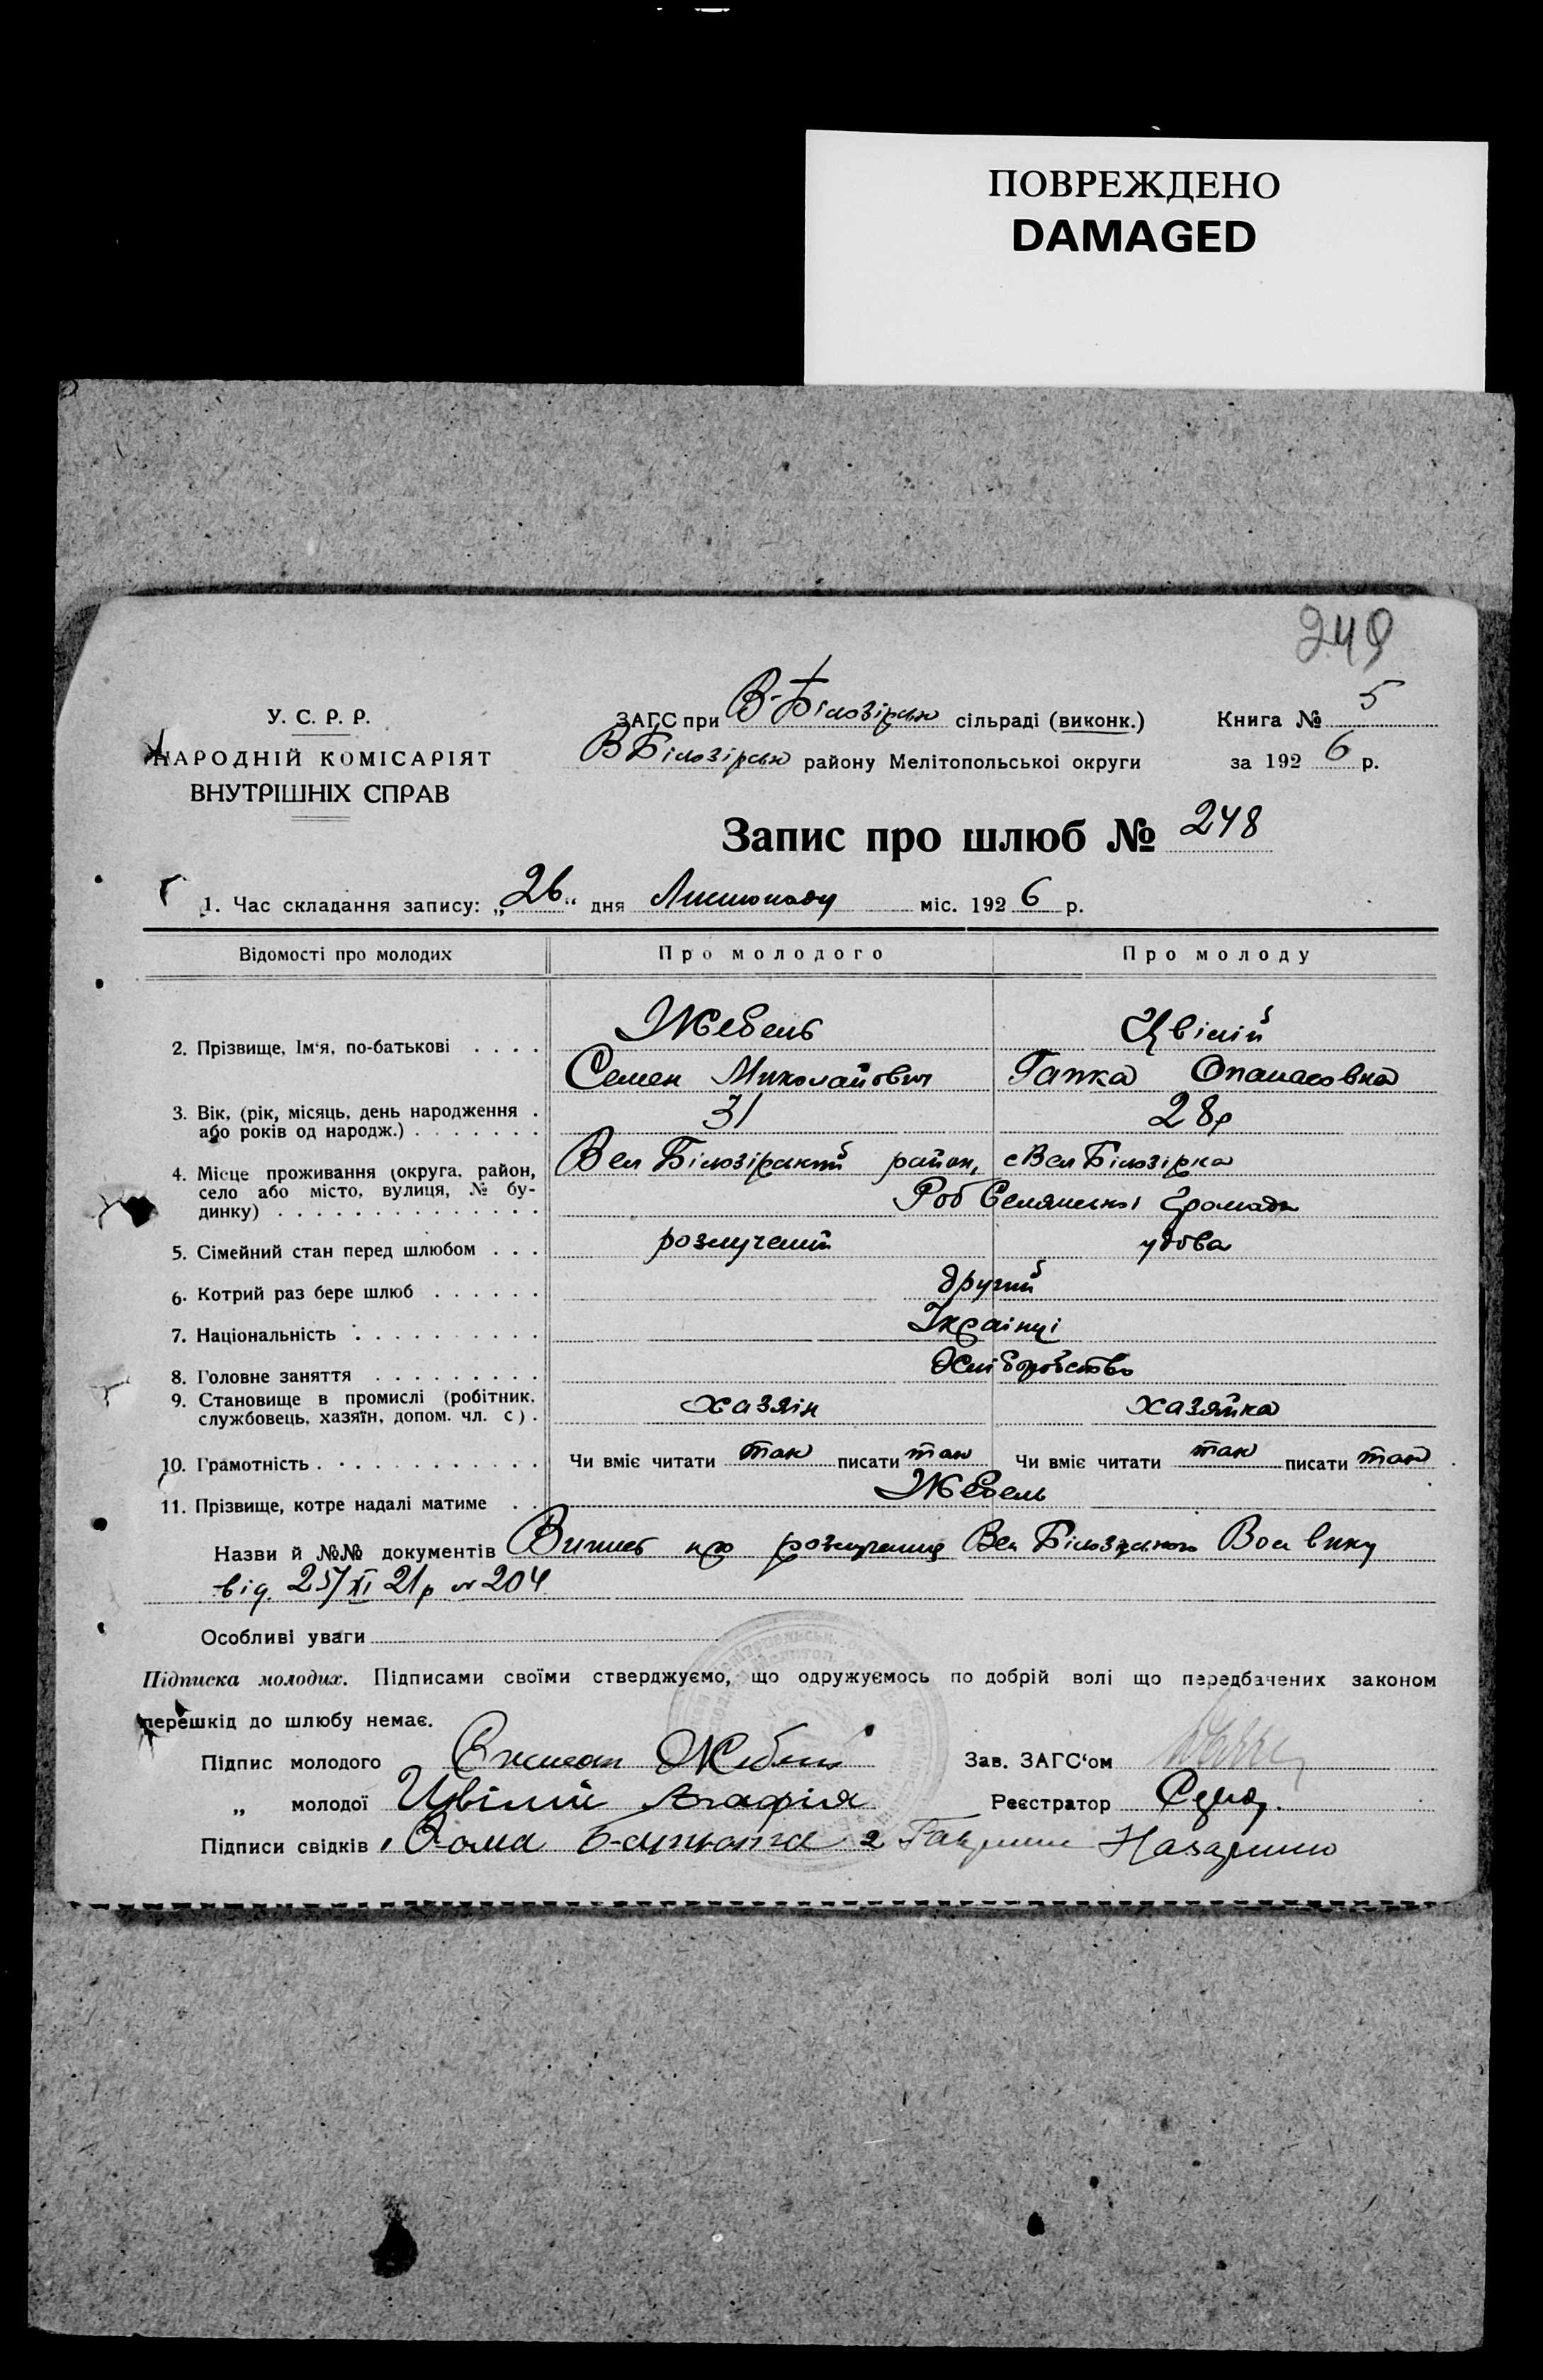 ПОВРЕЖДЕНО
DAMAGED
249
У. С. Р. Р.
НАРОДНІЙ КОМІСАРІЯТ
ВНУТРІШНІХ СПРАВ
ЗАГС при В-Білозірськ сільраді (виконк.)
В Білозірськ району Мелітопольскоі округи
Книга № 5
за 1926 р.
Запис про шлюб № 248
1. Час складання запису: „26“ дня Листопаду міс. 1926 р.
Відомості про молодих Про молодого Про молоду
2. Прізвище, Ім‘я, по-батькові . . . . Жебель Цвілій
Семен Миколайович Гапка Опанасовна
3. Вік, (рік, місяць, день народження .
або років од народж.) . . . . . . . 31 28р
4. Місце проживання (округа, район,
село або місто, вулиця, № бу-
динку) . . . . . . . . . . . . . .
Вел Білозірський район, с Вел Білозірка
Роб Селянської Громади
5. Сімейний стан перед шлюбом . . . розлучений удова
6. Котрий раз бере шлюб . . . . . . другий
7. Національність . . . . . . . . . . Українці
8. Головне заняття . . . . . . . . . хліборобство
9. Становище в промислі (робітник,
службовець, хазяїн, допом. чл. с) . хазяін хазяйка
10. Грамотність . . . . . . . . . . . . Чи вміє читати так писати так Чи вміє читати так писати так
11. Прізвище, котре надалі матиме . . Жебель
Назви й №№ документів Випись про розлучення Вел Білозірського Вол вику
від. 25/XI 21р № 204
Особливі уваги
Підписка молодих. Підписами своїми стверджуємо, що одружуємось по добрій волі що передбачених законом
перешкід до шлюбу немає.
Підпис молодого
Зав. ЗАГС‘ом
„ молодої Цвілій Агафія
Реєстратор
Підписи свідків 1 2 Назаренко